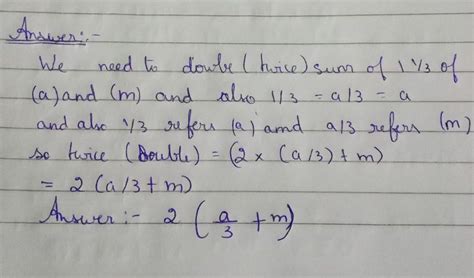 Answer:-
We need to double (twice) sum of 1 1/3 of
(a) and (m) and also 1/3 = a/3 = a
and also 1/3 refers (a) and a/3 refers (m)
so twice (double) = (2 × (a/3) + m)
= 2 (a/3 + m)
Answer:- 2 (a/3 + m)